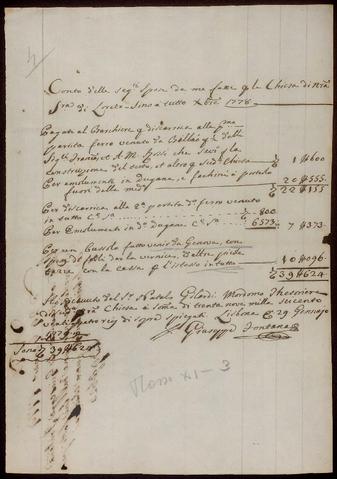 4
Conto delle seg.ti spese da me fatte p la Chiesa di Nrã
Sra di Loreto Sino à tutto Xbre 1778
Pagato al Barchiere p discarica alla pma
partita ferro venuto da
fratelli et A. M. Rossi, che servì p la
construzione del tetto, et altro p di da Chiesa 1 $600
Per emolumenti in dugana, e fachini à portelo
fuori della md.a 20 $555
22 $155
Per discarica alla 2.a partida di ferro venuto
in tutto C.e sa 800
Per Emolumenti in da Dugana C.e sa 6573 7 $373
Per un Bussolo fatto venir da Genova, con
spese di nolo, dar la vernice, et altre picole
spese, con la cassa p l'istesso in tutto 10 $096
39 $624
Ho ricevuti dal Sr Natale Gilardi Mordomo Thesoriere
di Nrã Chiesa la soma di trenta nove mille seicento
venti quatro reis di sopra spiegati Lisbona 29 Gennajo
Sono 39 $624
Giuseppe Fontana
Masso XI - 3